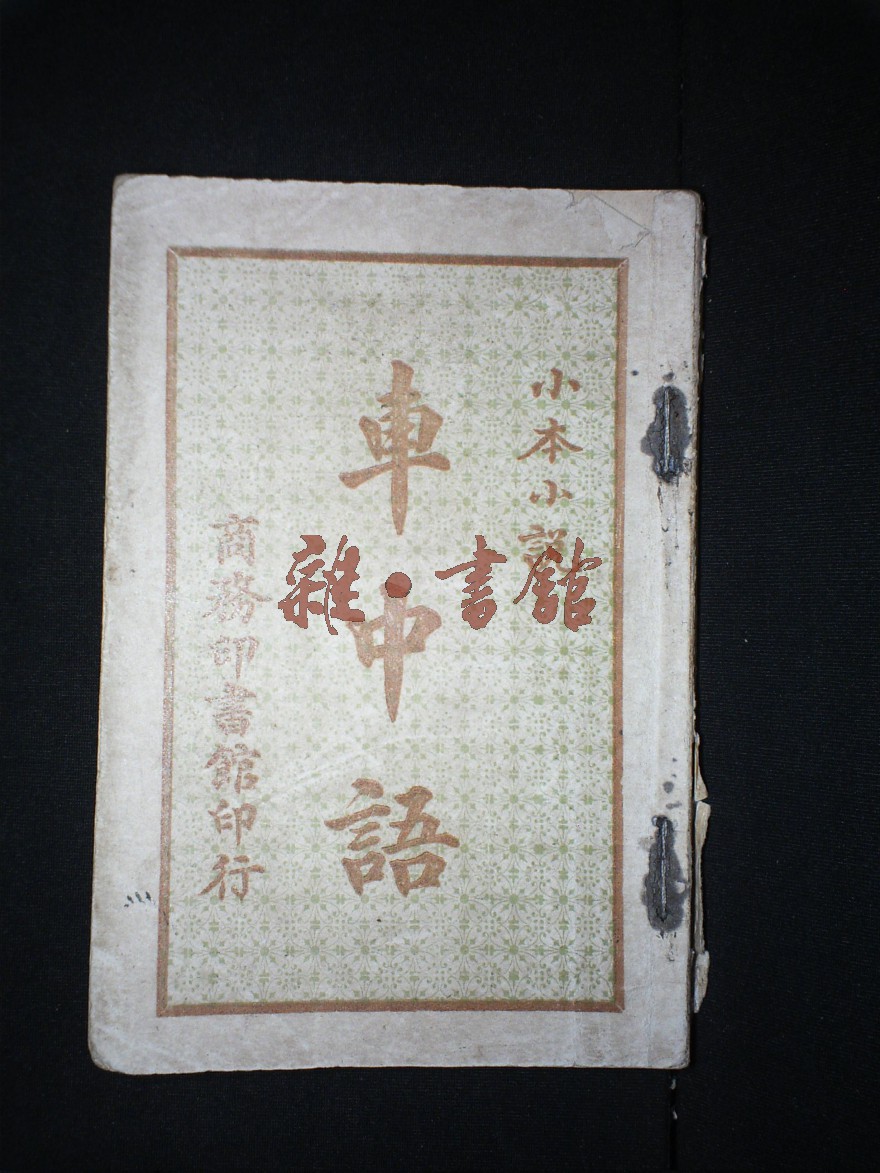 小本小說
車中語
商務印書館印行
雜·書館